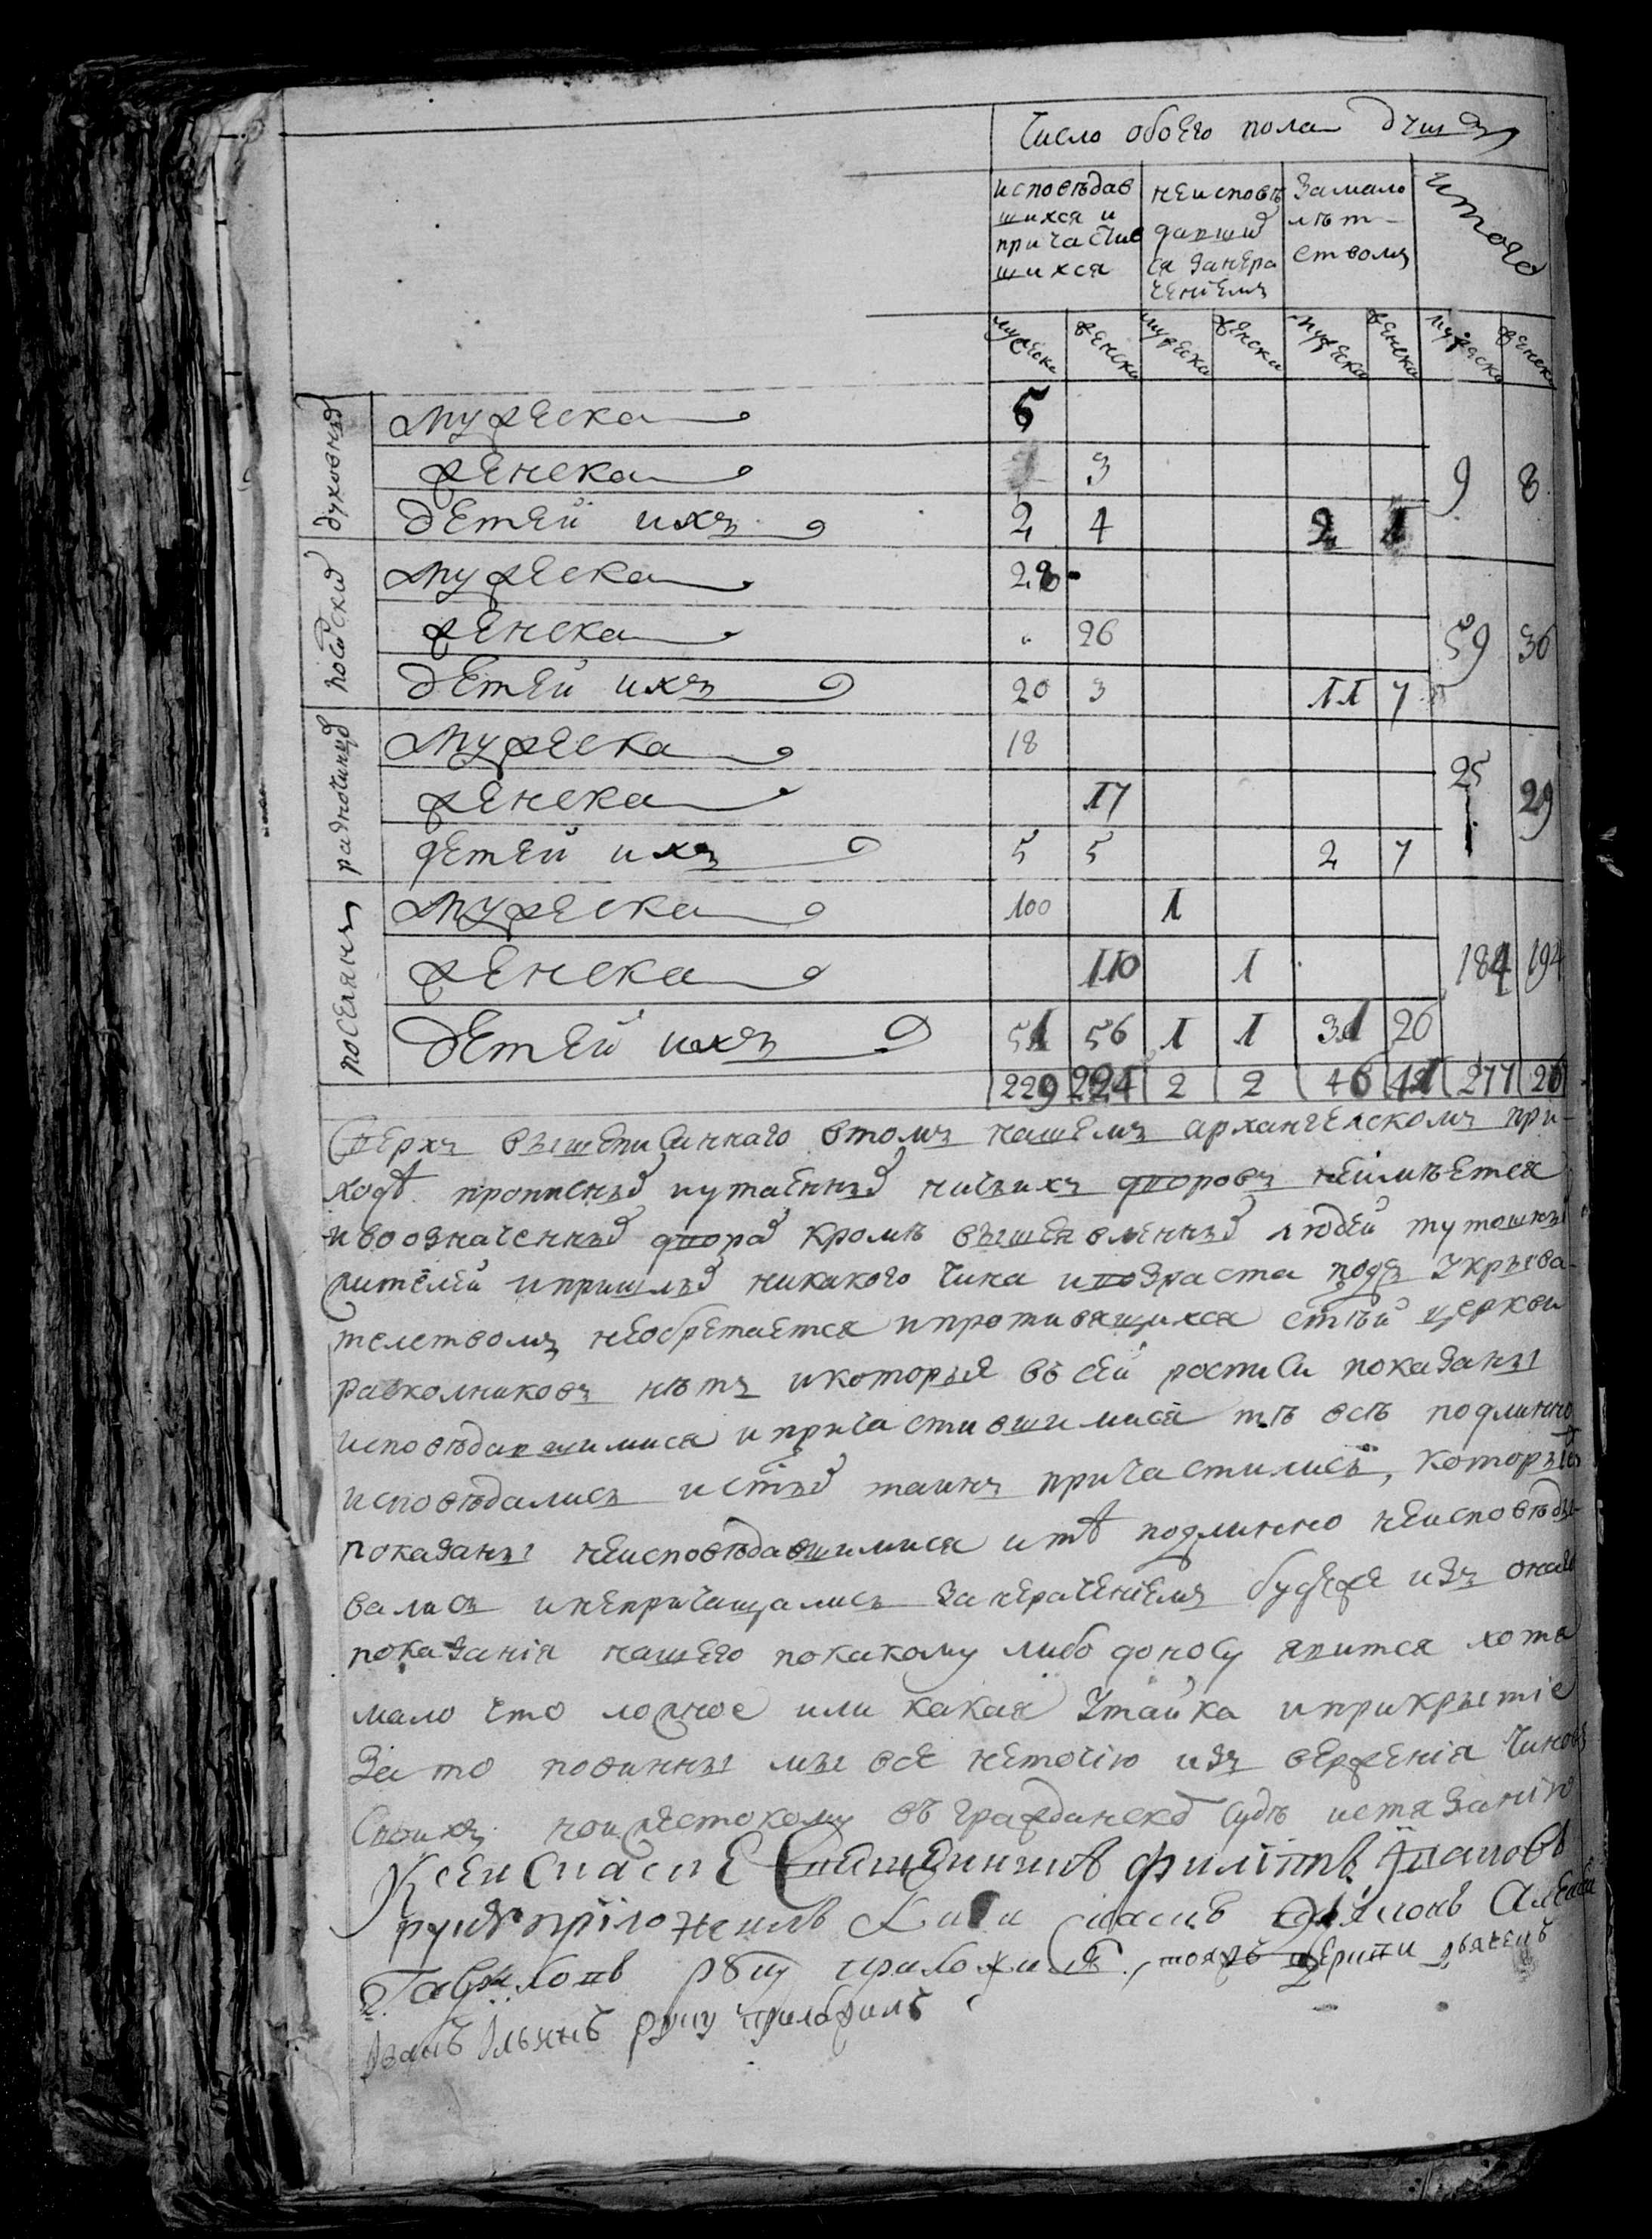 Число обоего пола душъ
исповѣдав
шихся и
причастив
шихся
неисповѣ
давших
ся занера
ченіемъ
Замало
лѣт-
ствомъ
Итого
мужеска женска мужеска женска мужеска женска мужеска женска
духовных
мужеска 5
женска 3 9 8
детей ихъ 2 4 2 1
посацких
мужеска 28
женска 26 59 36
детей ихъ 20 3 11 7
разночинцов
мужеска 18
женска 17 25 29
детей ихъ 5 5 2 7
поселянъ
мужеска 100 1
женска 110 1 184 194
детей ихъ 51 56 1 1 31 26
229 224 2 2 46 41 277 26
Сверхъ вышеписаннаго втомъ нашемъ архангелскомъ при-
ходѣ прописных иутаенных ничьихъ дворовъ неимѣется
ивоозначенных дворах кромѣ вышеявленных людей тутошных
жителей ипришлых никакого чина ивозраста подъ укрыва-
телствомъ необретается ипротивящихся стѣй церкви
расколниковъ нѣтъ икоторыя въ сей росписи показаны
исповѣдавшимися и причастившимися тѣ всѣ подлинно
исповѣдались истых таинъ причастились, которыя
показаны неисповѣдавшимися итѣ подлинно неисповѣды-
вались инепричащались занерачениемъ будеже изъ онаго
показанія нашего покакому либо доносу явится хотя
мало что ложное или какая утайка иприкрытіе
За то повинны мы все неточію изъ вержения чиновъ
Своихъ но ижестокому въ гражданскомъ судѣ истязанию
Ксей росписе Священникъ Филіппъ Івановъ
руку пріложилъ Ксеи росписе Алексѣи
Гавриловъ руку приложилъ, тояжъ церкви дьячекъ
Іванъ Ільинъ руку приложилъ